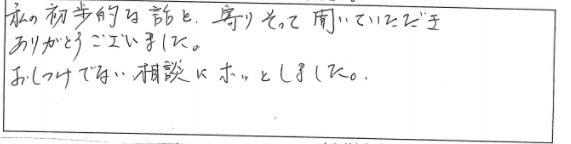 私の初歩的な話を、寄りそって聞いていただき
ありがとうございました。
おしつけでない相談にホッとしました。